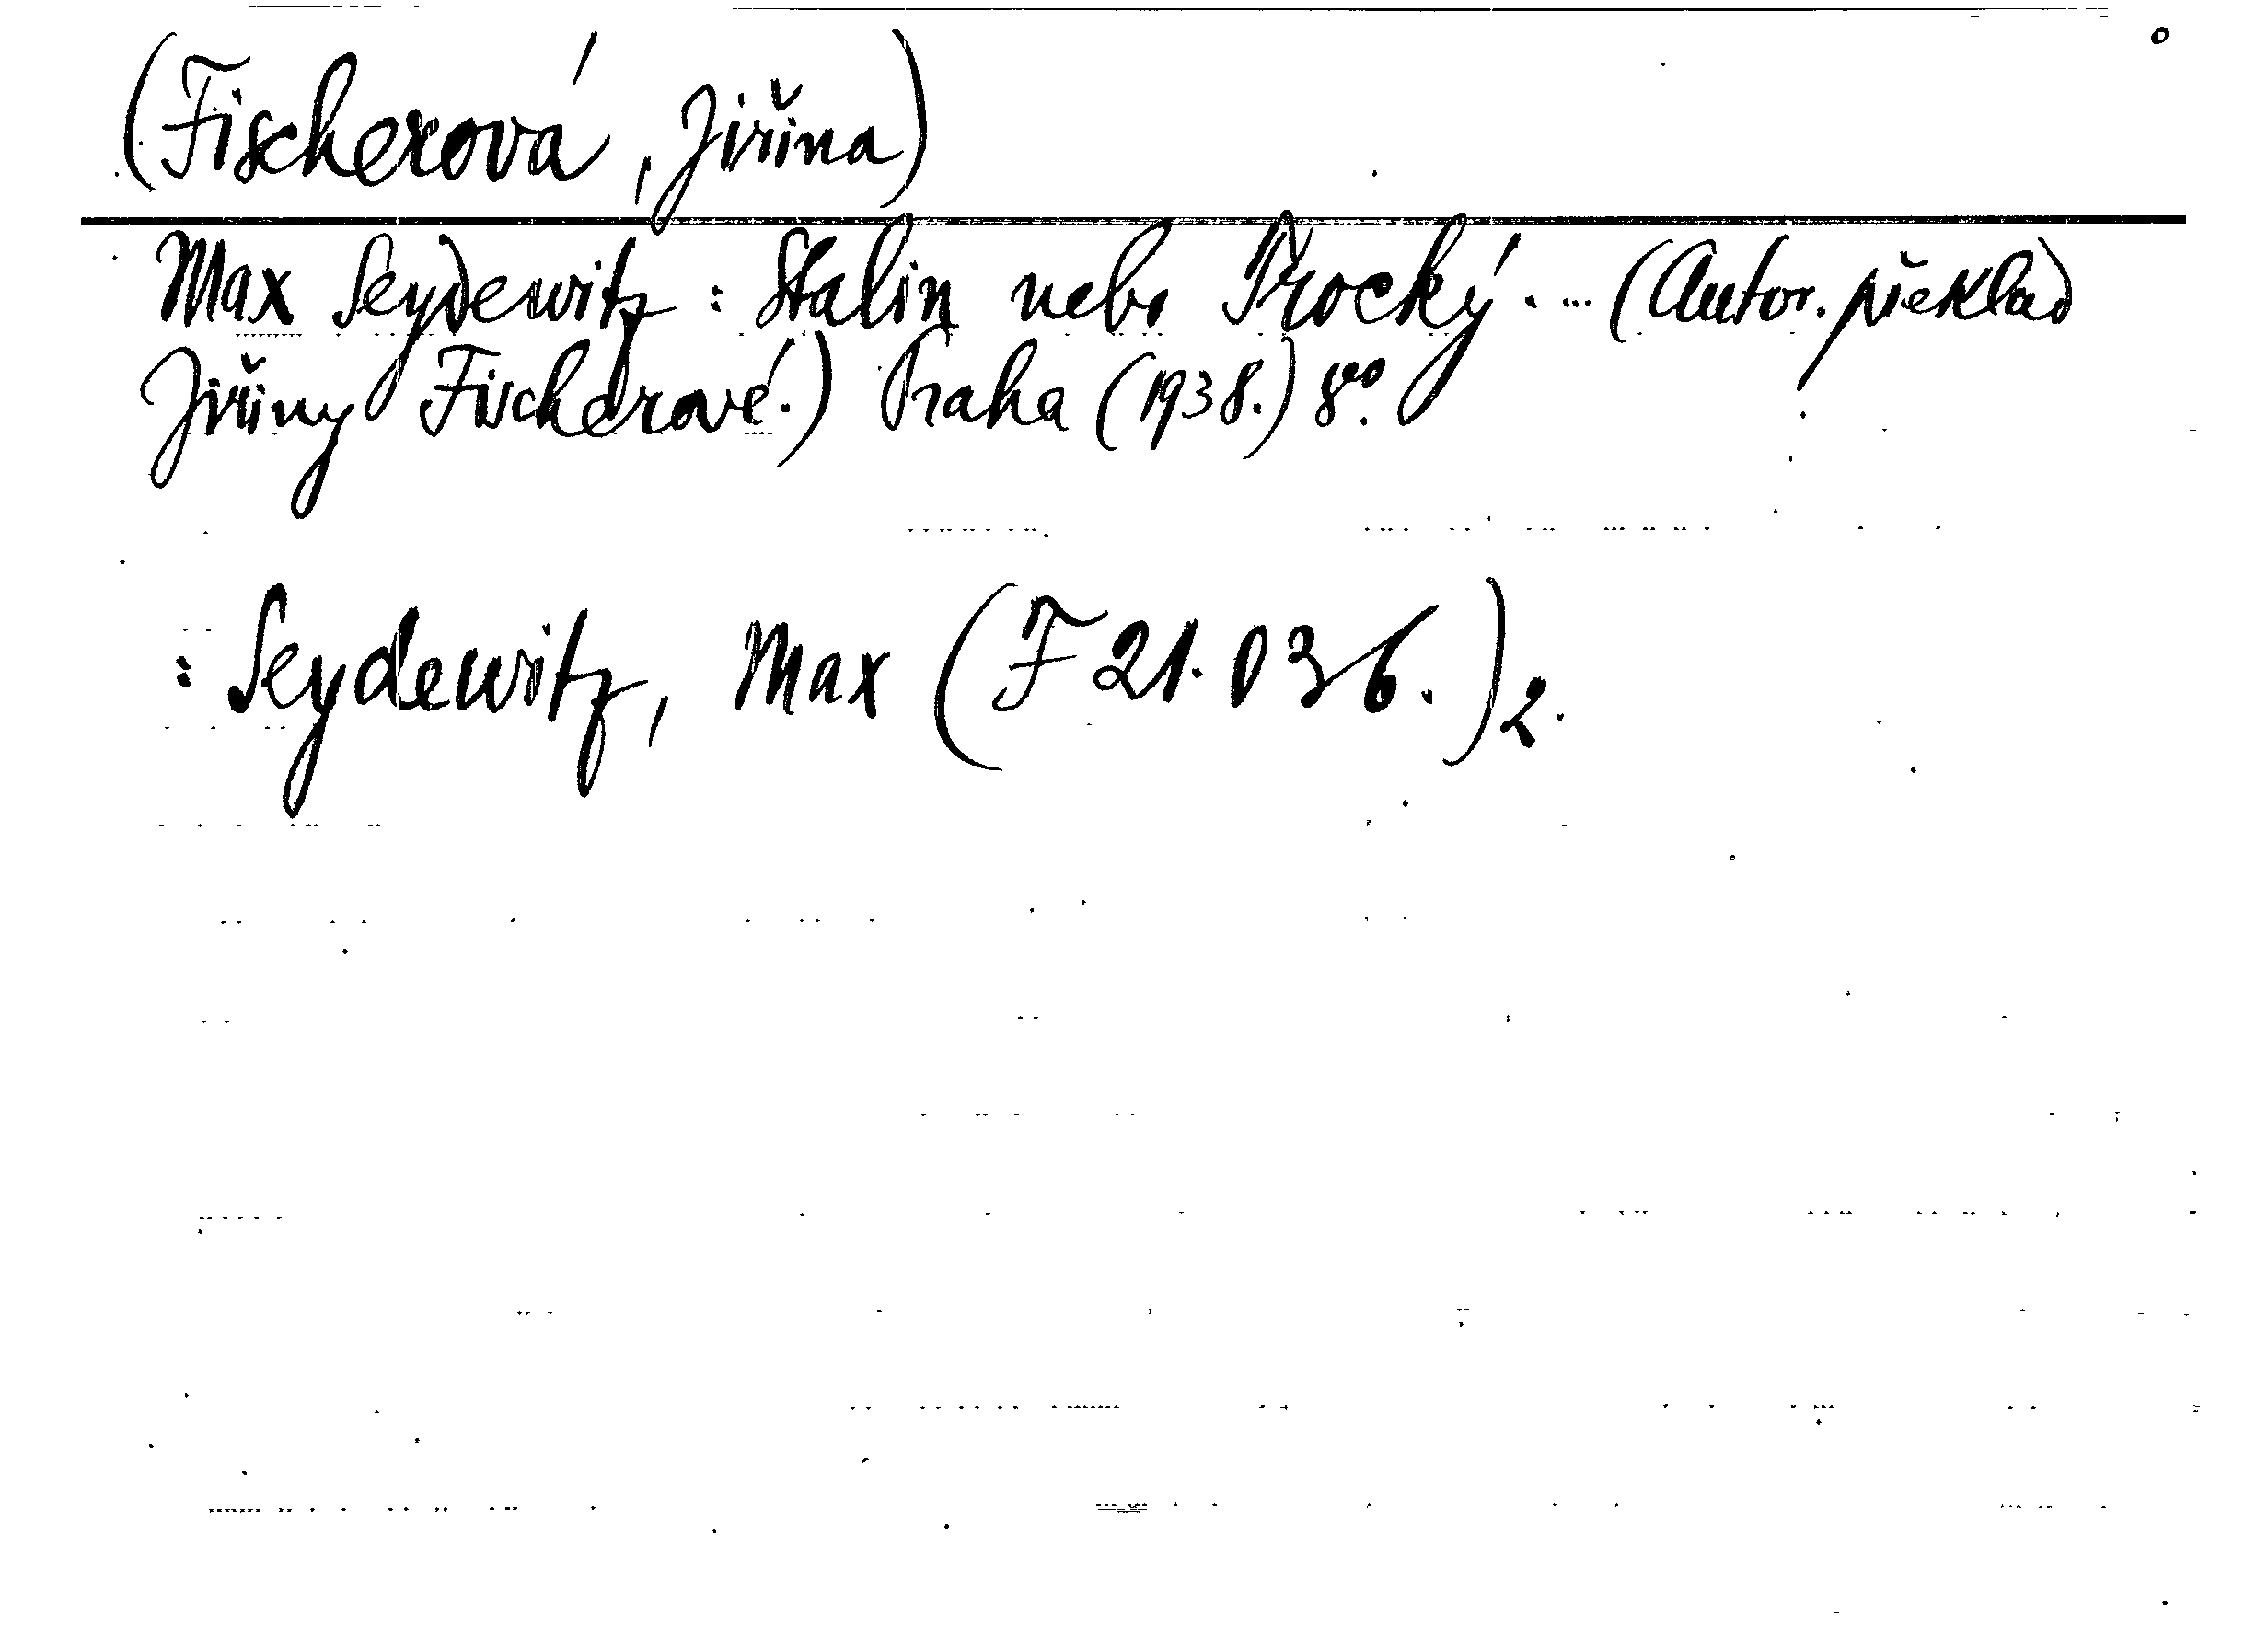 (Fischerová, Jiřina)
Max Seydewitz: Stalin nebo Trocký. ... (Autor. překlad
Jiřiny Fischerové.) Praha (1938.) 8vo.
: Seydewitz, Max (F 21.036.) 2.